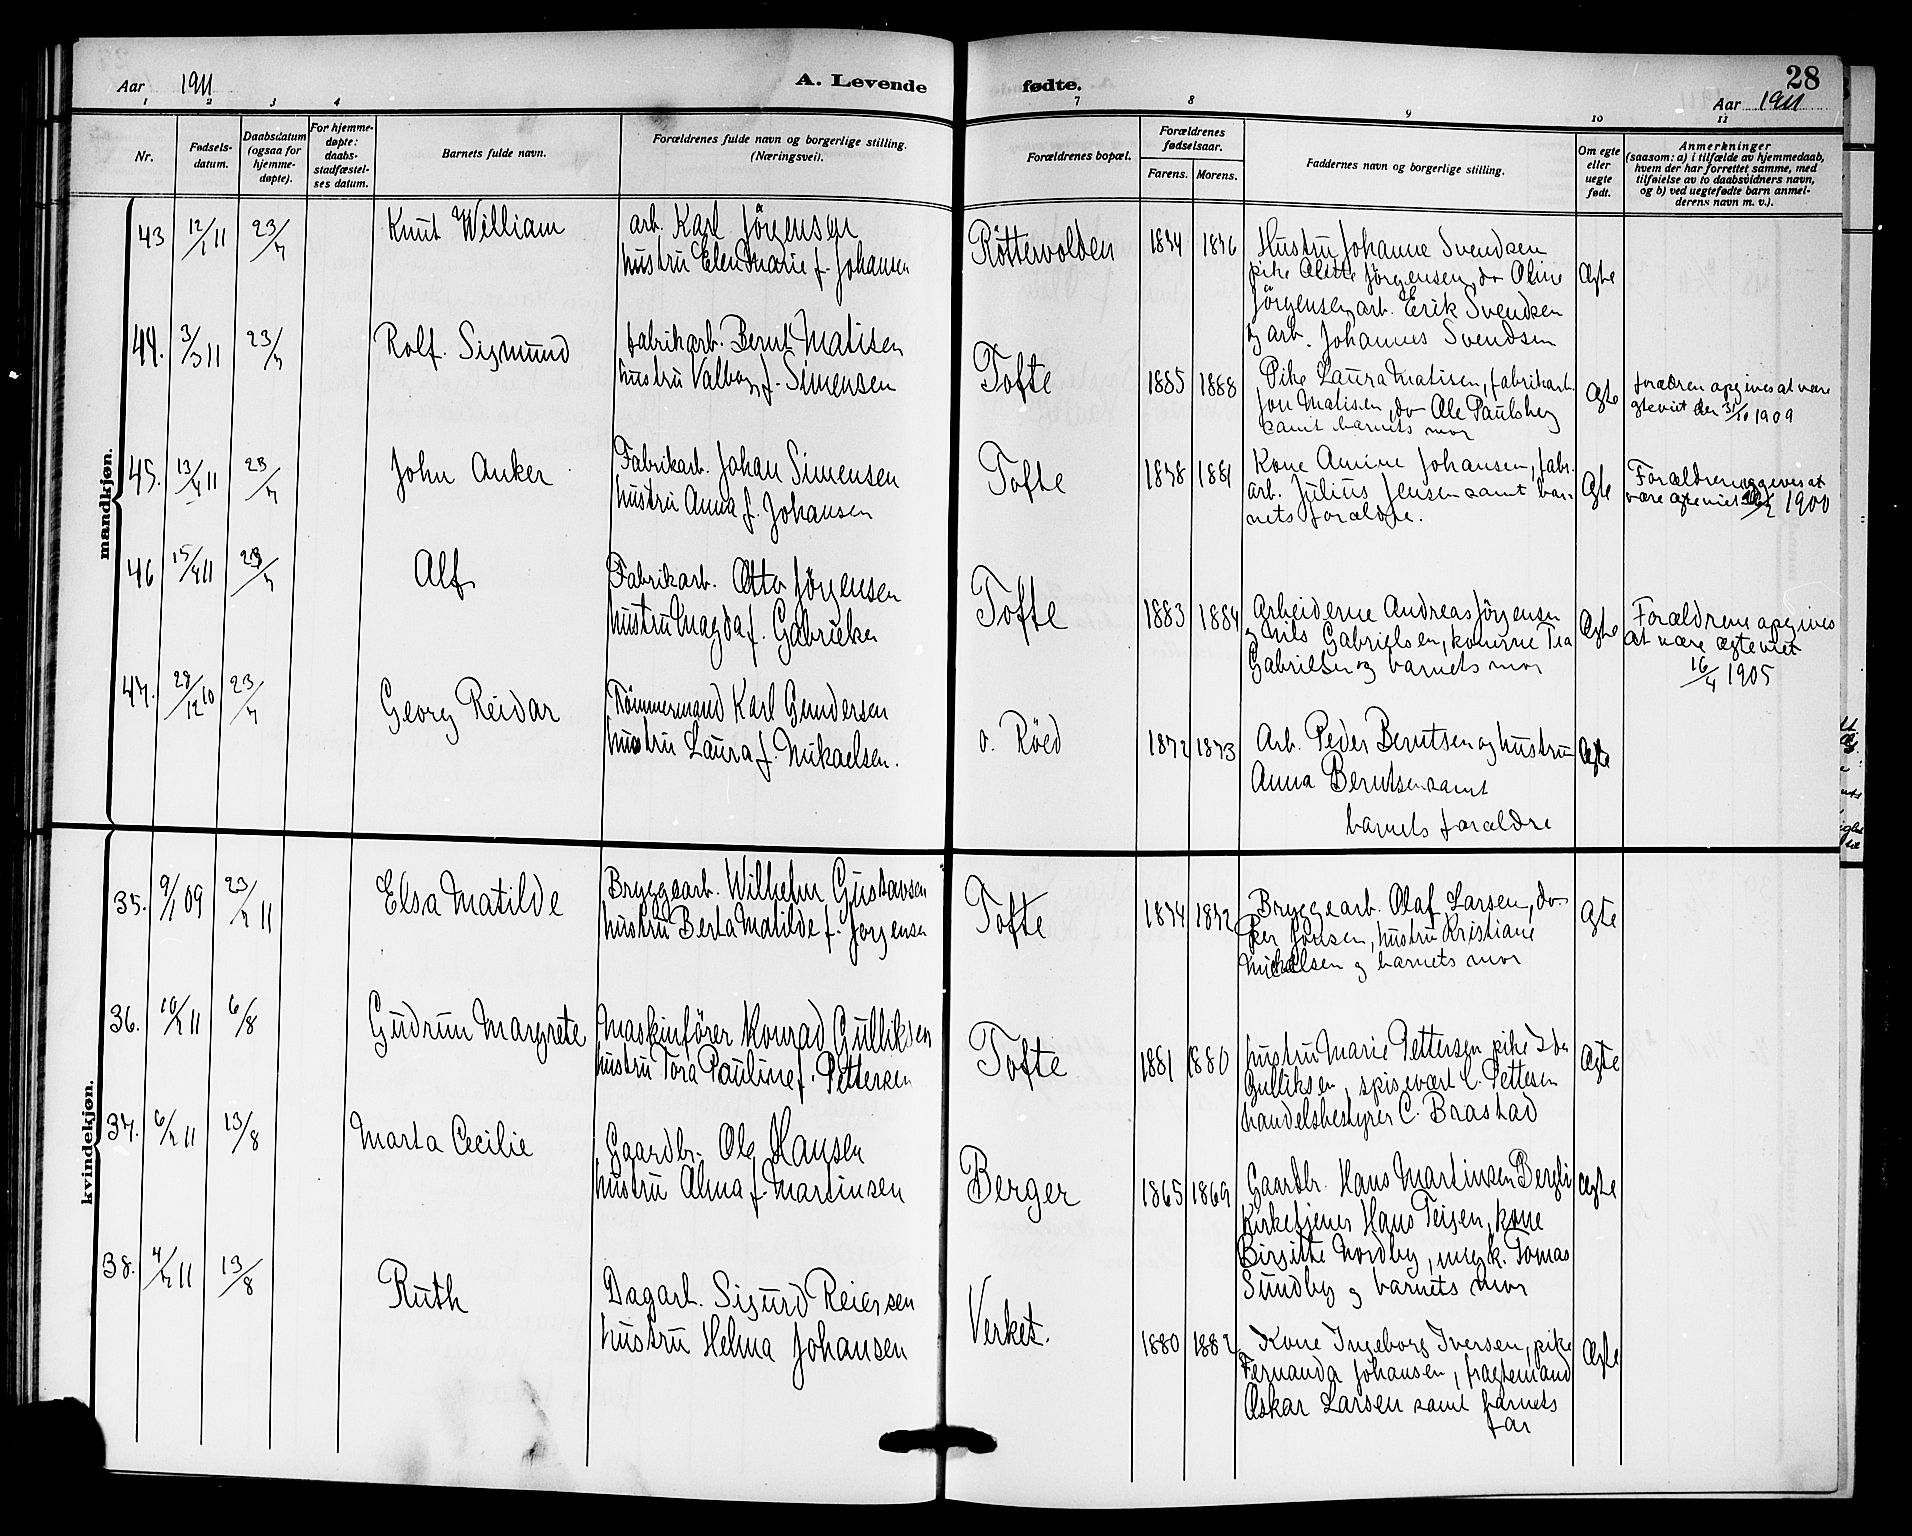 Aar 1911
A. Levende
fødte.
28
Aar 1911
1 2 3 4 7 8 9 10 11
Nr.
Fødsels-
datum.
Daabsdatum
(ogsaa for
hjemme-
døpte).
For hjemme-
døpte:
daabs-
stadfæstel-
ses datum.
Barnets fulde navn.
Forældrenes fulde navn og borgerlige stilling.
(Næringsvei).
Forældrenes bopæl.
Forældrenes
fødselsaar.
Farens. Morens.
Faddernes navn og borgerlige stilling.
Om egte
eller
uegte
født.
Anmerkninger
(saasom: a) i tilfælde av hjemmedaab,
hvem der har forrettet samme, med
tilføielse av to daabsvidners navn,
og b) ved uegtefødte barn anmel-
derens navn m. v.).
mandkjøn.
43 12/1 11 23/7
Knut William
arb. Karl Jörgensen
hustru Elen Marie f. Johansen
Röttervolden
1874 1876
Hustru Johanne Svendsen
pike Alette Jörgensen, do Oline
Jörgensen, arb. Erik Svendsen
og arb. Johannes Svendsen
Ægte
44. 3/3 11 23/7
Rolf Sigmund
fabrikarb. Bernt Matisen
hustru Valborg f. Simensen
Tofte
1885 1888
Pike Laura Matisen, fabrikarb.
Jon Matisen, do Ole Paulsberg
samt barnets mor
Ægte
forældren opgives at være
gteviet den 31/10 1909
45. 13/4 11 23/7
John Anker
Fabrikarb. Johan Simensen
hustru Anna f. Johansen
Tofte
1878 1881
Kone Amine Johansen, fabr.
arb. Julius Jensen samt bar-
nets forældre.
Ægte
Forældrene opgives at
være ægteviet 1900
46 15/4 11 23/7
Alf
Fabrikarb. Otto Jörgensen
hustru Magda f. Gabrielsen
Tofte
1883 1884
Arbeiderne Andreas Jörgensen
og Nils Gabrielsen, konerne Tea
Gabrielsen og barnets mor
Ægte
Forældrene opgives
at være ægteviet
16/4 1905
47. 28/12 10 23/7
Georg Reidar
Tömmermand Karl Gundersen
hustru Laura f. Mikaelsen.
o. Röed
1872 1873
Arb. Peder Berntsen og hustru
Anna Berntsen samt
barnets forældre
Ægte
kvindekjøn.
35. 9/1 09 23/7 11
Elsa Matilde
Bryggearb. Wilhelm Gustavsen
hustru Berta Matilde f. Jorgensen
Tofte
1874 1872
Bryggearb. Olaf Larsen, do
Per Jonsen, hustru Kristiane
Mickelsen og barnets mor
Ægte
36. 10/2 11 6/8
Gudrun Margrete
Maskinförer Konrad Gulliksen
hustru Tora Pauline f. Pettersen
Tofte
1881 1880
hustru Marie Pettersen pike Ida
Gulliksen, spisevært C. Pettesen
handelsbestyrer C. Brastad
Ægte
37. 6/2 11 13/8
Marta Cecilie
Gaardbr. Ole Hansen
hustru Alma f. Martinsen
Berger
1865 1869
Gaardbr. Hans Martinsen Bergli
kirketjener Hans Teigen, kone
Birgitte Nordby, ungk. Tomas
Sundby og barnets mor
Ægte
38. 4/7 11 13/8
Ruth
Dagarb. Sigurd Reiersen
hustru Helma Johansen
Verket.
1880 1882
Kone Ingeborg Iversen, pike
Fernanda Johansen, fragtemand
Oskar Larsen samt barnets
far
Ægte